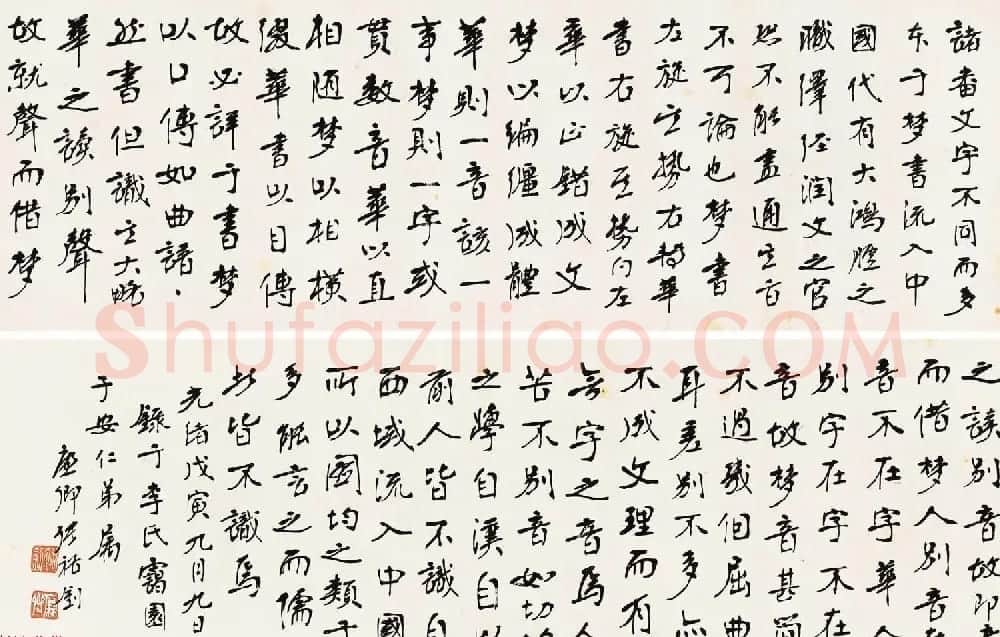 諸番文字不同而多
本于梵書流入中
國代有大鴻臚之
職譯經潤文之官
恐不能盡通其旨
不可論也梵書
左旋其勢右華
書右旋其勢向左
華以正錯成文
梵以編纏成體
華則一音該一
事梵則一字或
貫數音華以直
相隨梵以相橫
綴華書以目傳
故必詳于書梵
以口傳如曲譜
然書但識其大略
華之讀別聲
故就聲而借梵
之讀別音故即音
而借梵人別音
音不在字華人
別字在字不在
音故梵音甚簡
不過幾個屈曲
耳差別不多亦
不成文理而有
無字之音焉人
苦不別音如切韻
之學自漢自
前人皆不識自
西域流入中國
所以圖均之類
多能言之而儒
皆不識焉
光緒戊寅九月九日
錄于李氏園
子安仁弟屬
卿
Shufaziliao.COM